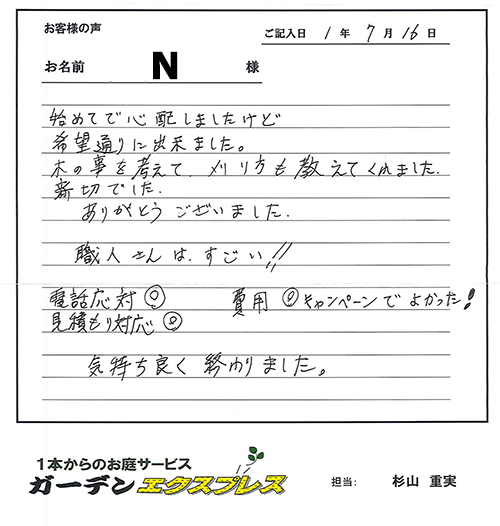 お客様の声
ご記入日 1年 7月 16日
お名前 N 様
始めてで心配しましたけど
希望通りに出来ました。
木の事を考えて、刈り方も教えてくれました.
親切でした.
ありがとうございました.
職人さんは、すごい!!
電話応対◎ 費用◎キャンペーンでよかった!
見積もり対応◎
気持ち良く終わりました。
1本からのお庭サービス
ガーデンエクスプレス
担当: 杉山 重実